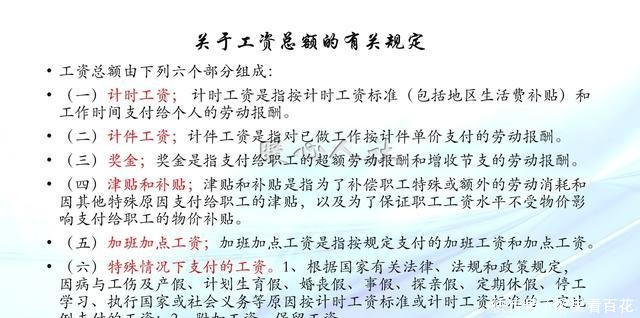 关于工资总额的有关规定
• 工资总额由下列六个部分组成：
• （一）计时工资；计时工资是指按计时工资标准（包括地区生活费补贴）和
工作时间支付给个人的劳动报酬。
• （二）计件工资；计件工资是指对已做工作按计件单价支付的劳动报酬。
• （三）奖金；奖金是指支付给职工的超额劳动报酬和增收节支的劳动报酬。
• （四）津贴和补贴；津贴和补贴是指为了补偿职工特殊或额外的劳动消耗和
因其他特殊原因支付给职工的津贴，以及为了保证职工工资水平不受物价影
响支付给职工的物价补贴。
• （五）加班加点工资；加班加点工资是指按规定支付的加班工资和加点工资。
• （六）特殊情况下支付的工资。1、根据国家有关法律、法规和政策规定，
因病与工伤及产假、计划生育假、婚丧假、事假、探亲假、定期休假、停工
学习、执行国家或社会义务等原因按计时工资标准或计时工资
例支付的工资；2、附加工资、保留工资。